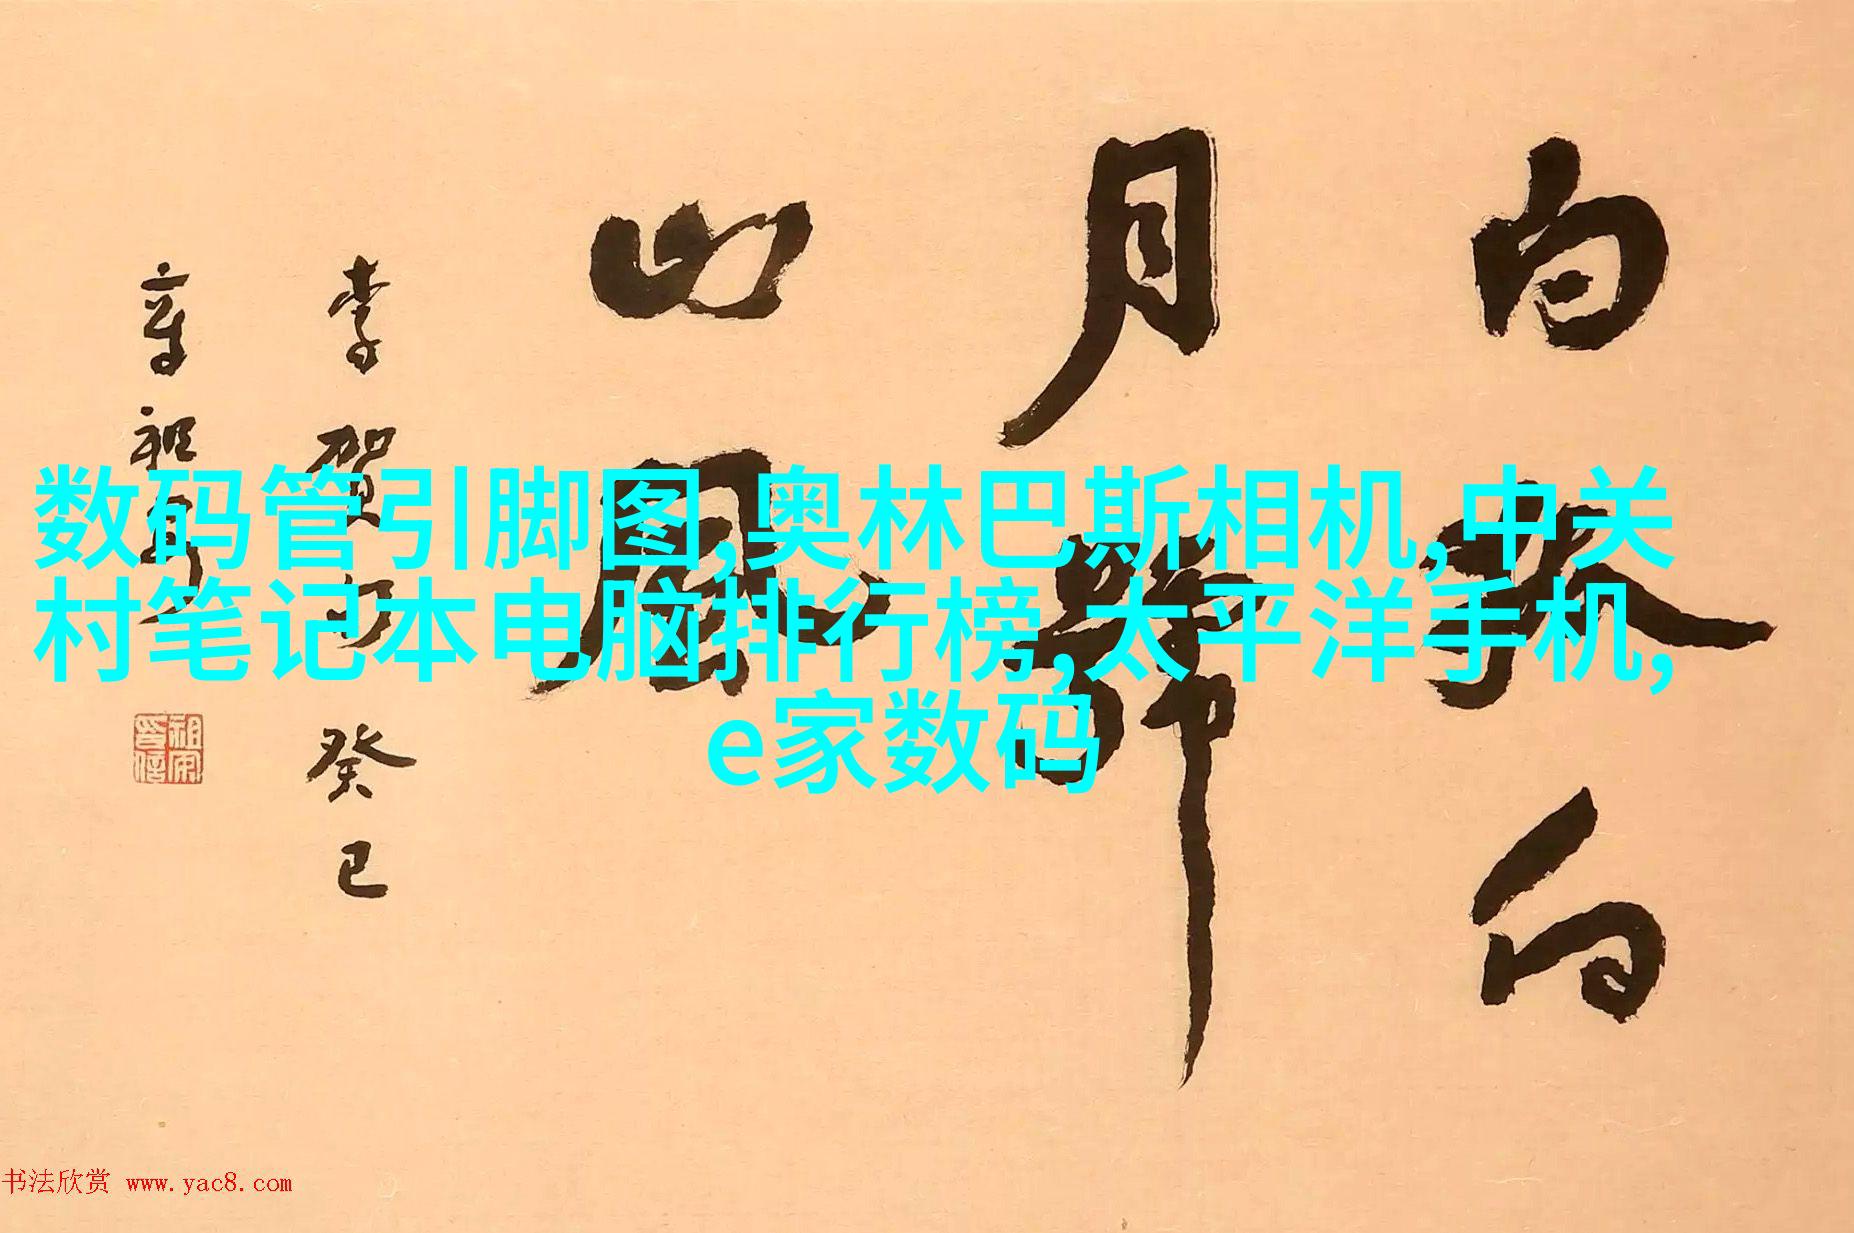 数码管引脚图,奥林巴斯相机,中关
村笔记本电脑排行榜,太平洋手机,
e家数码
白狐向
月
山風
李賀句癸巳
章祖安
书法欣赏 www.yac8.com